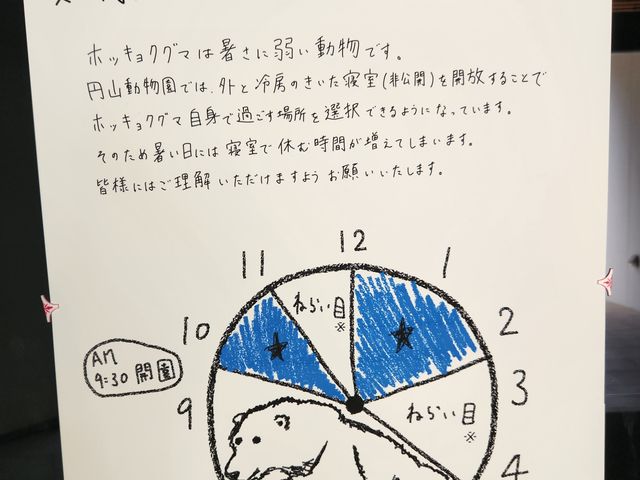 ホッキョクグマは暑さに弱い動物です。
円山動物園では、外と冷房のきいた寝室(非公開)を開放することで
ホッキョクグマ自身で過ごす場所を選択できるようになっています。
そのため暑い日には寝室で休む時間が増えてしまいます。
皆様にはご理解いただけますようお願いいたします。
12
11
1
ねらい目
※
10
★
★
2
AM
9:30 開園
9
ねらい目
※
3
4